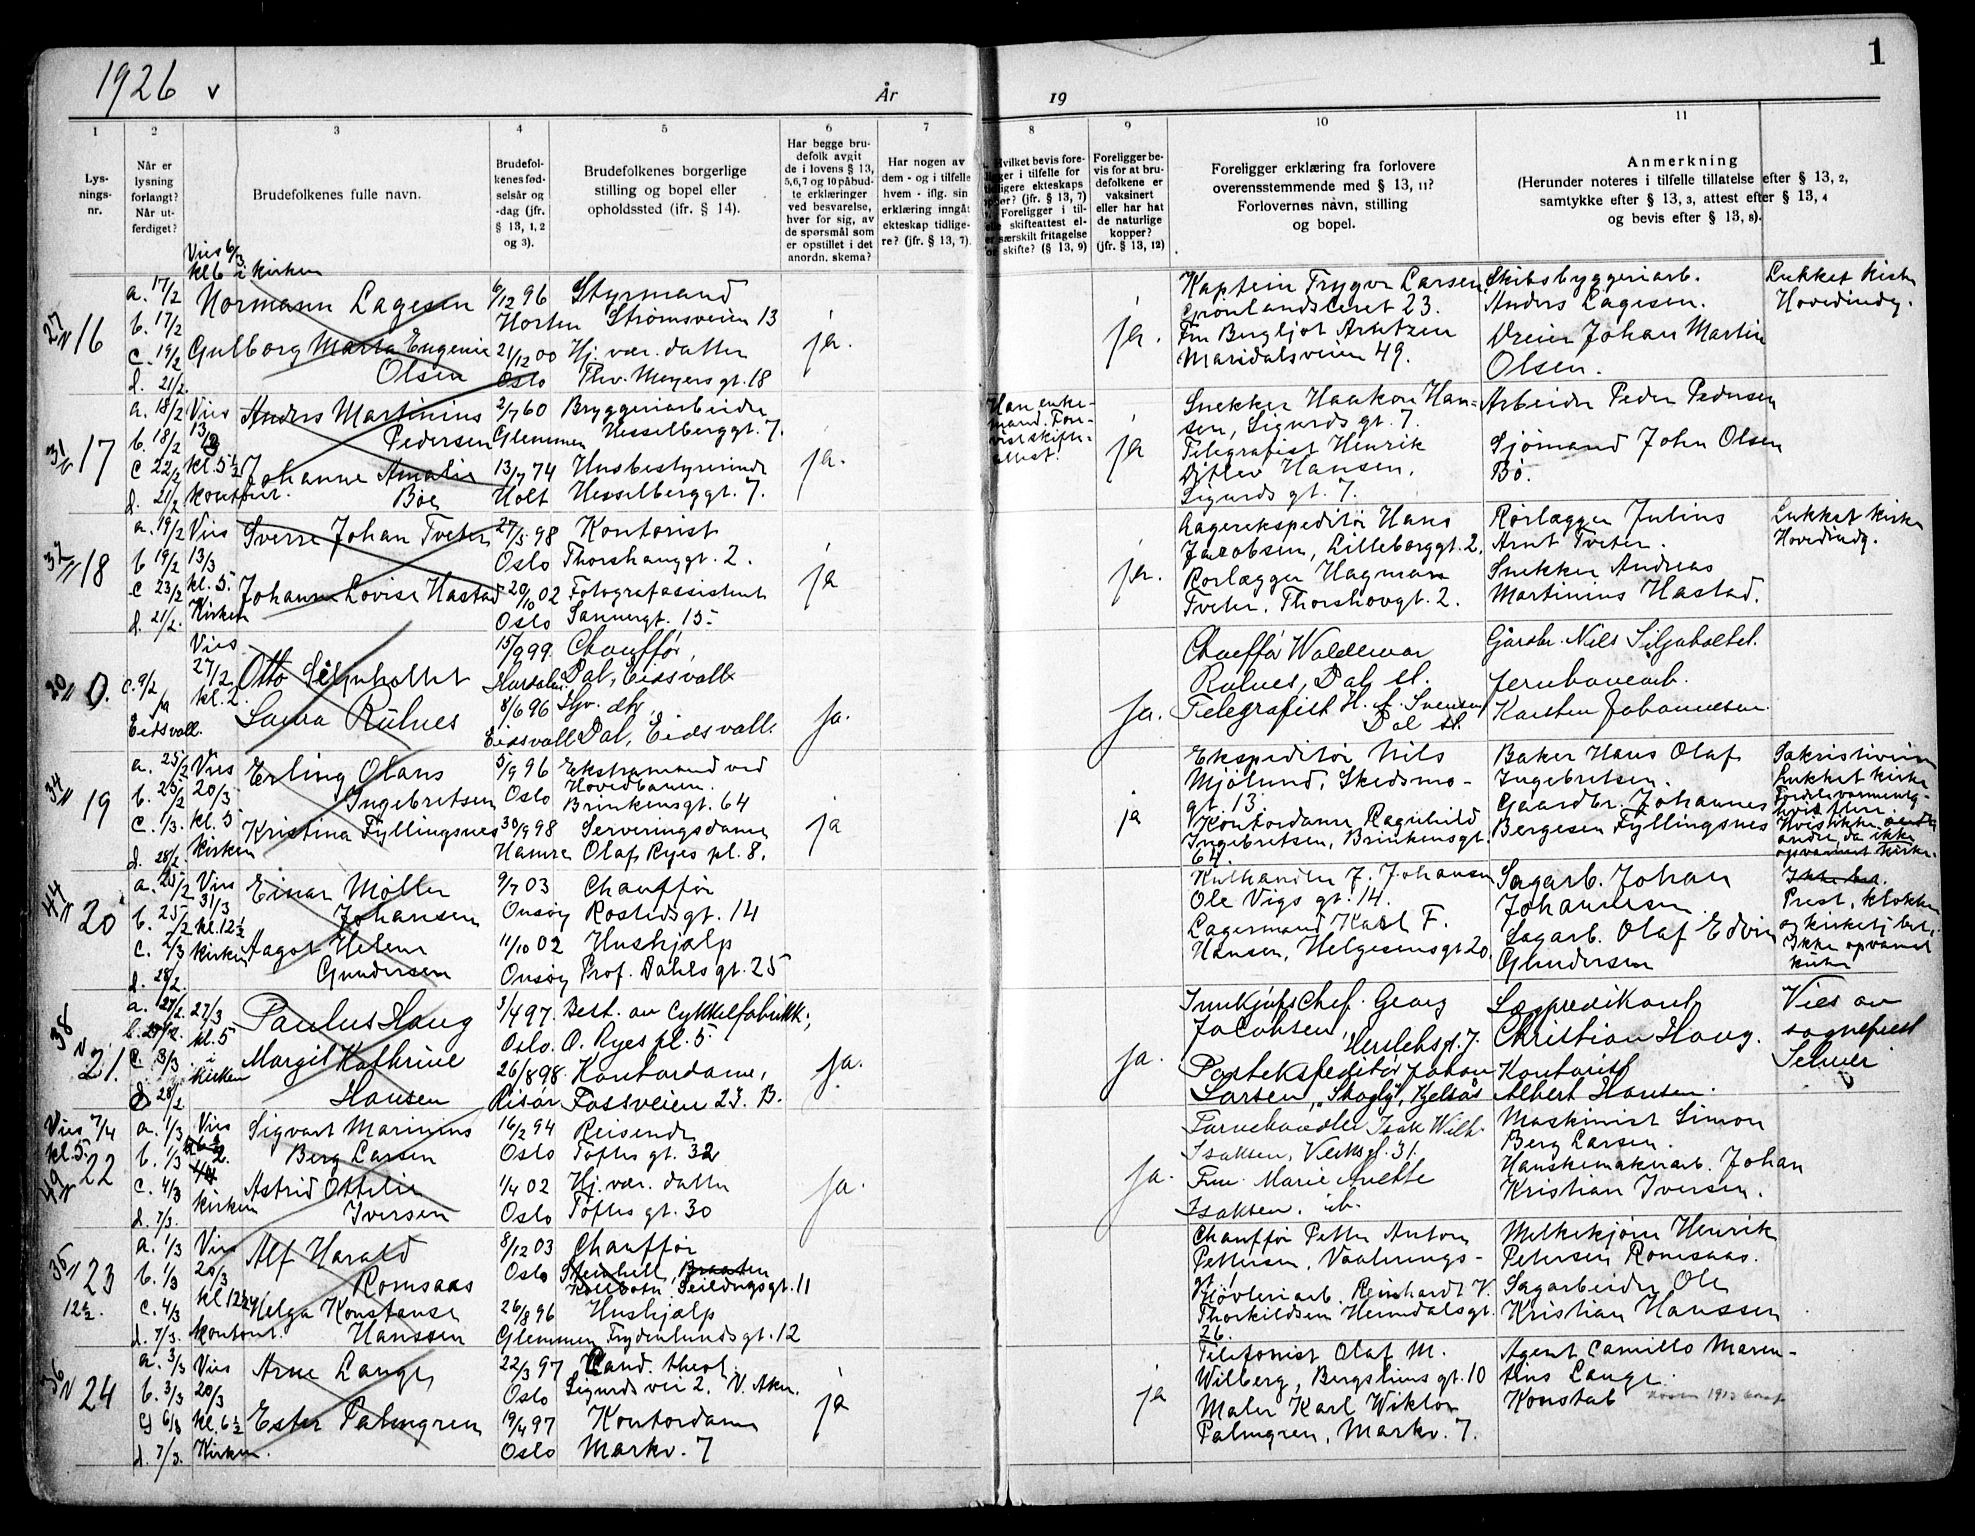 1926 v
År
19
1
1
2
3
4
5
6
7
8
9
10
11
Lys-
nings-
nr.
Når er
lysning
forlangt?
Når ut-
ferdiget?
Brudefolkenes fulle navn.
Brudefol-
kenes fød-
selsår og
-dag (jfr.
§ 13, 1, 2
og 3).
Brudefolkenes borgerlige
stilling og bopel eller
opholdssted (ifr. § 14).
Har begge bru-
defolk avgit
de i lovens § 13,
5,6,7 og 10 påbud-
te erklæringer
ved besvarelse,
hver for sig, av
de spørsmål som
er opstillet i det
anordn. skema?
Har nogen av
dem - og i tilfelle
hvem - iflg. sin
erklæring inngått
ekteskap tidlige-
re? (jfr. § 13, 7).
Hvilket bevis fore-
ligger i tilfelle for
tidligere ekteskaps
(jfr. § 13, 7)
Foreligger i til-
skifteattest el-
særskilt fritagelse
skifte? (§ 13, 9)
Foreligger be-
vis for at bru-
defolkene er
vaksinert
eller har hat
de naturlige
kopper?
(jfr. § 13, 12)
Foreligger erklæring fra forlovere
overensstemmende med § 13, 11?
Forlovernes navn, stilling
og bopel.
Anmerkning
(Herunder noteres i tilfelle tillatelse efter § 13, 2,
samtykke efter § 13, 3, attest efter § 13, 4
og bevis efter § 13, 8).
Vies 6/3
kl 6 i kirken
16
a. 17/2
b. 17/2
c. 19/2
d. 21/2
Normann Lagesen
Gulborg Marta Eugenie
Olsen
6/12 96
Horten
21/12 00
Oslo
Styrmand
Strømsveien 13
Hj. vær. datter
Thv. Meyers gt. 18
ja.
ja.
Kaptein Trygve Larsen
Grønlandsleret 23.
Fru Bergljot Arntzen
Maridalsveien 49.
Skibsbyggeriarb.
Anders Lagesen.
Dreier Johan Martin
Olsen.
Lukket kirke
Hovedindg.
17
a. 18/2
b. 18/2
c 22/2
d. 21/2
Vies
kl. 5 1/2
kontoret.
Anders Martinius
Pedersen
Johanne Amalie
Bøe
2/7 60
Glemmen
13/7 74
Holt
Bryggeriarbeider
Hesselberggt. 7.
Husbestyrerinde
Hesselberggt. 7.
ja.
Han enke-
mand. Fore-
vist skifte-
attest.
ja
Snekker Haakon Han-
sen, Sigurds gt. 7.
Telegrafist Henrik
Ditlev Hansen,
Sigurds gt. 7.
Arbeider Peder Pedersen
Sjømand John Olsen
Bø.
18
a. 19/2
b 19/2
c 23/2
d. 21/2.
Vies
13/3
kl. 5.
Kirken
Sverre Johan Tveter
Johanne Lovise Hastad
27/5 98
Oslo
20/10 02
Oslo
Kontorist
Thorshauggt. 2.
Fotografassistent
Sannergt. 15
ja
ja.
Lagerekspeditør Hans
Jacobsen, Lilleborggt. 2.
Rørlægger Hagmann
Tveter. Thorshovgt. 2.
Rørlægger Julius
Arnt Tveter.
Snekker Andreas
Martinius Hastad.
Lukket kirke
Hovedindg.
0.
c. 9/2
fra
Eidsvoll.
Vies
27/2
kl. 2.
Otto
Laura Rulnes
15/9 99
8/6 96
Eidsvoll
Chauffør,
Dal, Eidsvoll
Dal, Eidsvoll.
Ja.
Ja.
Chauffør Waldemar
Rulnes, Dal st.
Telegrafist H. A. Svensen
Dal st.
Nils
Jernbanearb.
Karsten Johannesen
19
a. 25/2
b. 25/2
c. 1/3.
d. 28/2.
Vies
20/3
kl. 5
kirken
Erling Olaus
Ingebretsen
Kristina Fyllingsnes
5/9 96
Oslo
30/9 98
Hamre
Ekstramand ved
Hovedbanen.
Brinkensgt. 64
Serveringsdame
Olaf Ryes pl. 8.
ja
ja
Ekspeditør Nils
Mjølund, Skedsmo-
gt. 13.
Kontordame Ragnhild
Ingebretsen, Brinkensgt.
64.
Baker Hans Olaf
Ingebretsen.
Gaardbr. Johannes
Bergesen Fyllingsnes
Sakristiveien
Lukket kirke
20
a. 25/2
b. 25/2
c. 2/3
d. 28/2.
Vies
31/3
kl. 12 1/2
kirken
Einar Møller
Johansen
Aagot Helene
Gundersen
9/7 03
Onsøy
11/10 02
Onsøy
Chauffør
Rosteds gt. 14
Hushjælp
Prof. Dahls gt. 25
Kulhandler J. Johansen
Ole Vigs gt. 14.
Lagermand Karl F.
Hansen, Helgesensgt 20.
Sagarb. Johan
Johannesen
Sagarb. Olaf Edvin
Gundersen
Ikke bet.
Prest, klokker
og kirketj. bet.,
Ikke opvarmet
kirke
21.
a. 27/2.
c. 3/3.
d 28/2
27/3
kl. 5
i
kirken
Paulus Haug
Margit Kathrine
Hansen
3/4 97.
Oslo.
26/8 98.
Risør
Best. av Cykkelfabrikk.;
O. Ryes pl. 5
Kontordame,
Fossveien 23. B.
Ja.
Ja.
Innkjøpschef Georg
Jacobsen,
Herslebsgt. 7.
Postekspeditør Johan
Larsen, "Skogly", Kjelsås
Lægpredikant
Christian Haug.
Kontorist
Albert Hansen.
Vies av
sogneprest
Selmer
Vies 7/4
kl. 5.
22
a. 1/3
b. 1/3
c. 4/3
d. 7/3.
Vies
kirken
Sigvart Marinius
Berg Larsen
Astrid Ottilie
Iversen
16/2 94
Oslo
1/4 02
Oslo
Reisende
Toftes gt. 32
Hj. vær. datter
Toftes gt. 30
Ja.
Ja.
Farvehandler Isak Wilh.
Isaksen, Verksgt. 31.
Fru Marie Anette
Isaksen. ib.
Maskinist Simon
Berg Larsen.
Hanskemakerarb. Johan
Kristian Iversen.
23
a. 1/3
b. 1/3
c. 4/3
d. 7/3.
Vies
20/3
kl 12 1/2
kontoret.
Alf Harald
Romsaas
Helga Konstanse
Hanssen
8/12 03
Oslo
26/8 96
Glemmen
Chauffør
Steinhell, Braaten
Kolbotn, Seildugsgt. 11
Hushjælp
Frydenlundsgt. 12
Chauffør Petter Anton
Pettersen, Vaalerengs-
gt. 1
Høvleriarb. Reinhardt V.
Thorkildsen Heimdalsgt.
26.
Melkekjører Henrik
Petersen Romsaas.
Sagarbeider Ole
Kristian Hanssen
24
a. 3/3
b. 3/3
d. 7/3
Vies
20/3
kl. 6 1/2
Kirken.
Arne Lange
Ester Palmgren
22/3 97
Oslo
19/4 97
Oslo
Cand. theol.
Sigurds vei 2. V. Aker.
Kontordame
Markv. 7
ja
ja
Telefonist Olaf M.
Wilberg, Bergsliens gt. 10
Maler Karl Wiktor
Palmgren, Markv. 7.
Agent Camillo Maren-
tius Lange.
Konstab